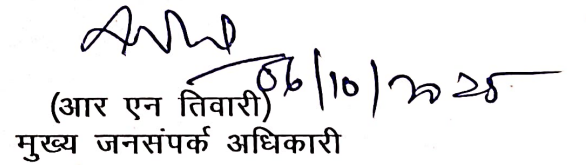 06/10/2025
(आर एन तिवारी)
मुख्य जनसंपर्क अधिकारी